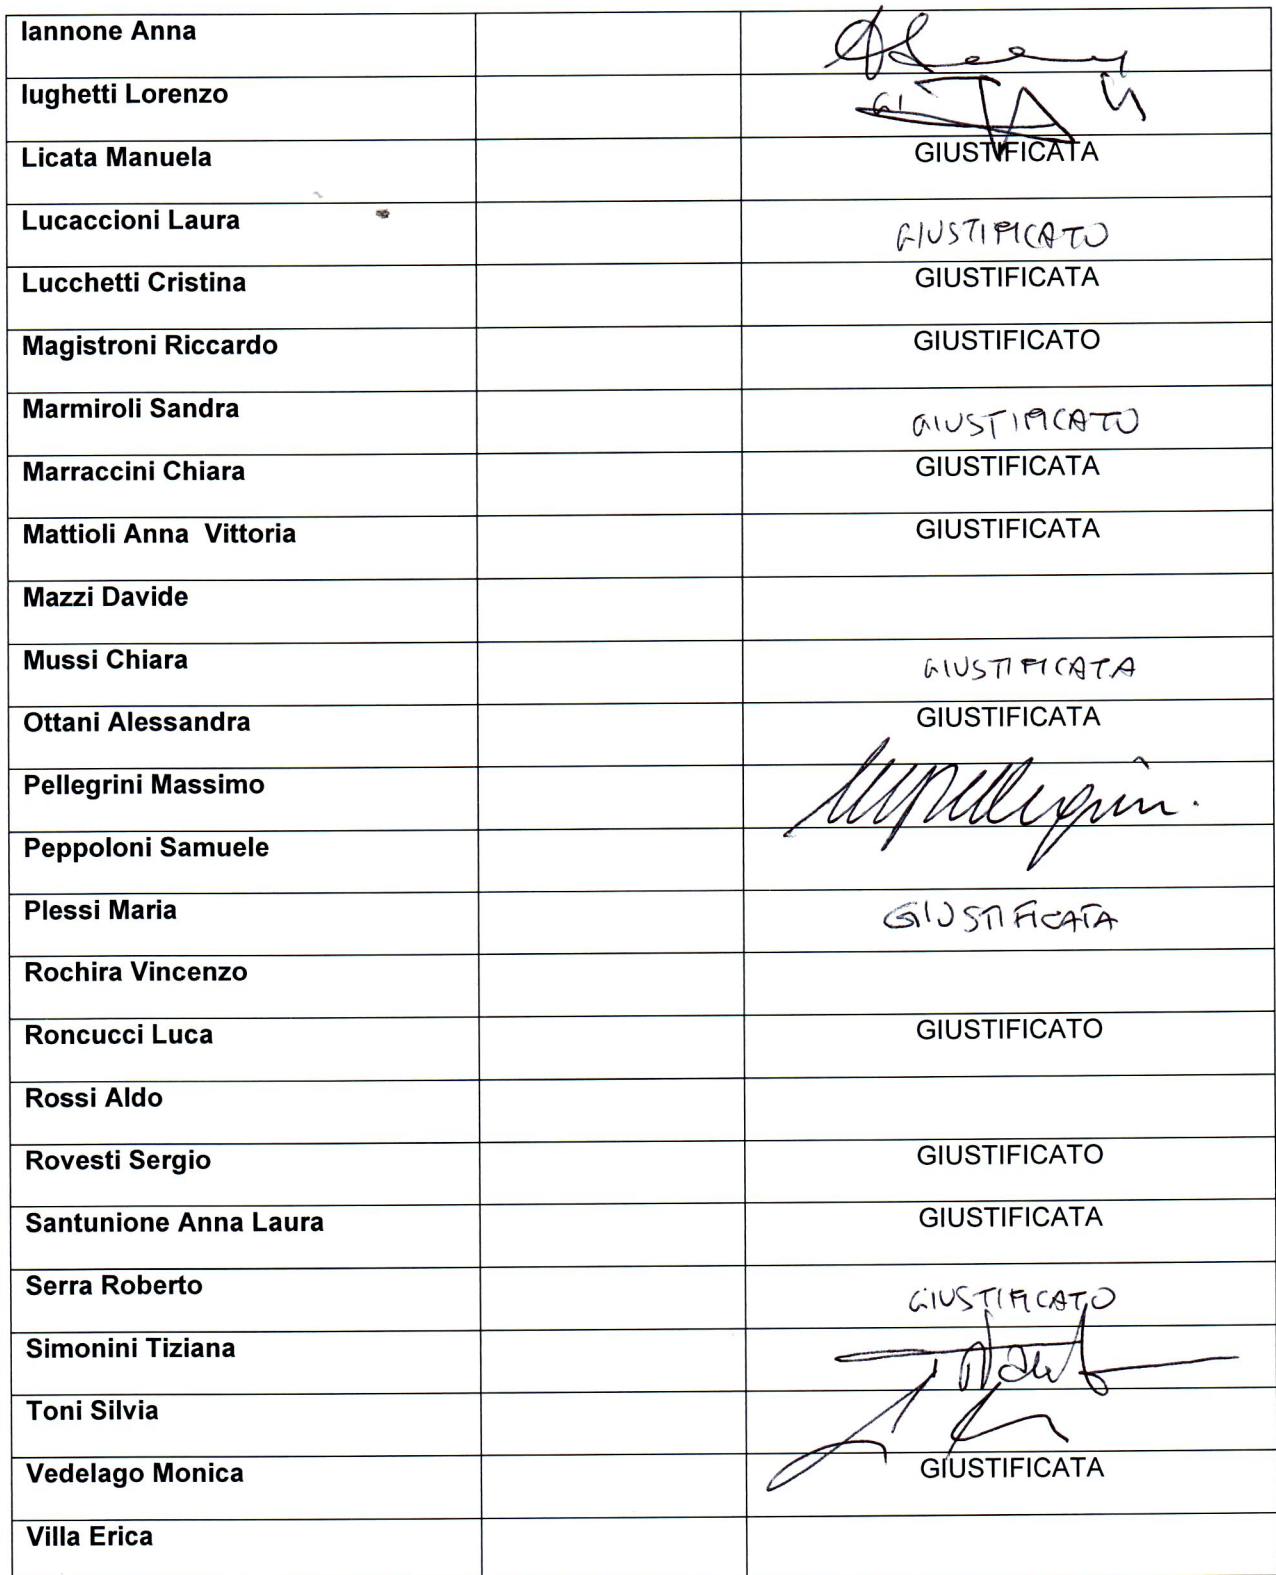 Iannone Anna
Iughetti Lorenzo
Licata Manuela GIUSTIFICATA
Lucaccioni Laura GIUSTIFICATO
Lucchetti Cristina GIUSTIFICATA
Magistroni Riccardo GIUSTIFICATO
Marmiroli Sandra GIUSTIFICATO
Marraccini Chiara GIUSTIFICATA
Mattioli Anna  Vittoria GIUSTIFICATA
Mazzi Davide
Mussi Chiara GIUSTIFICATA
Ottani Alessandra GIUSTIFICATA
Pellegrini Massimo
Peppoloni Samuele
Plessi Maria GIUSTIFICATA
Rochira Vincenzo
Roncucci Luca GIUSTIFICATO
Rossi Aldo
Rovesti Sergio GIUSTIFICATO
Santunione Anna Laura GIUSTIFICATA
Serra Roberto GIUSTIFICATO
Simonini Tiziana
Toni Silvia
Vedelago Monica GIUSTIFICATA
Villa Erica